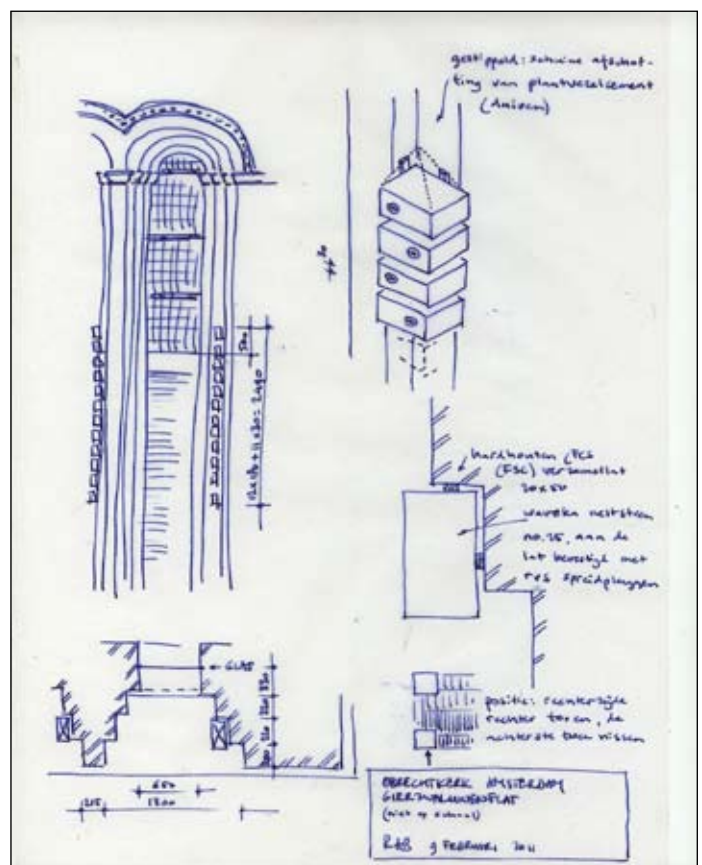 gestippeld: schuine afschot-
ting van plantvezelcement
520
12x180 + 11x30 = 2490
hardhouten (FCS
(FSC) verzamellat
30x50
waveka neststeen
no. 25, aan de
lat bevestigd met
rvs spreidpluggen
GLAS
650
215
1300
positie: rechterzijde
rechter toren, de
achterste twee nissen
OBRECHTKERK AMSTERDAM
GIERZWALUWENFLAT
(niet op schaal)
9 FEBRUARI 2011